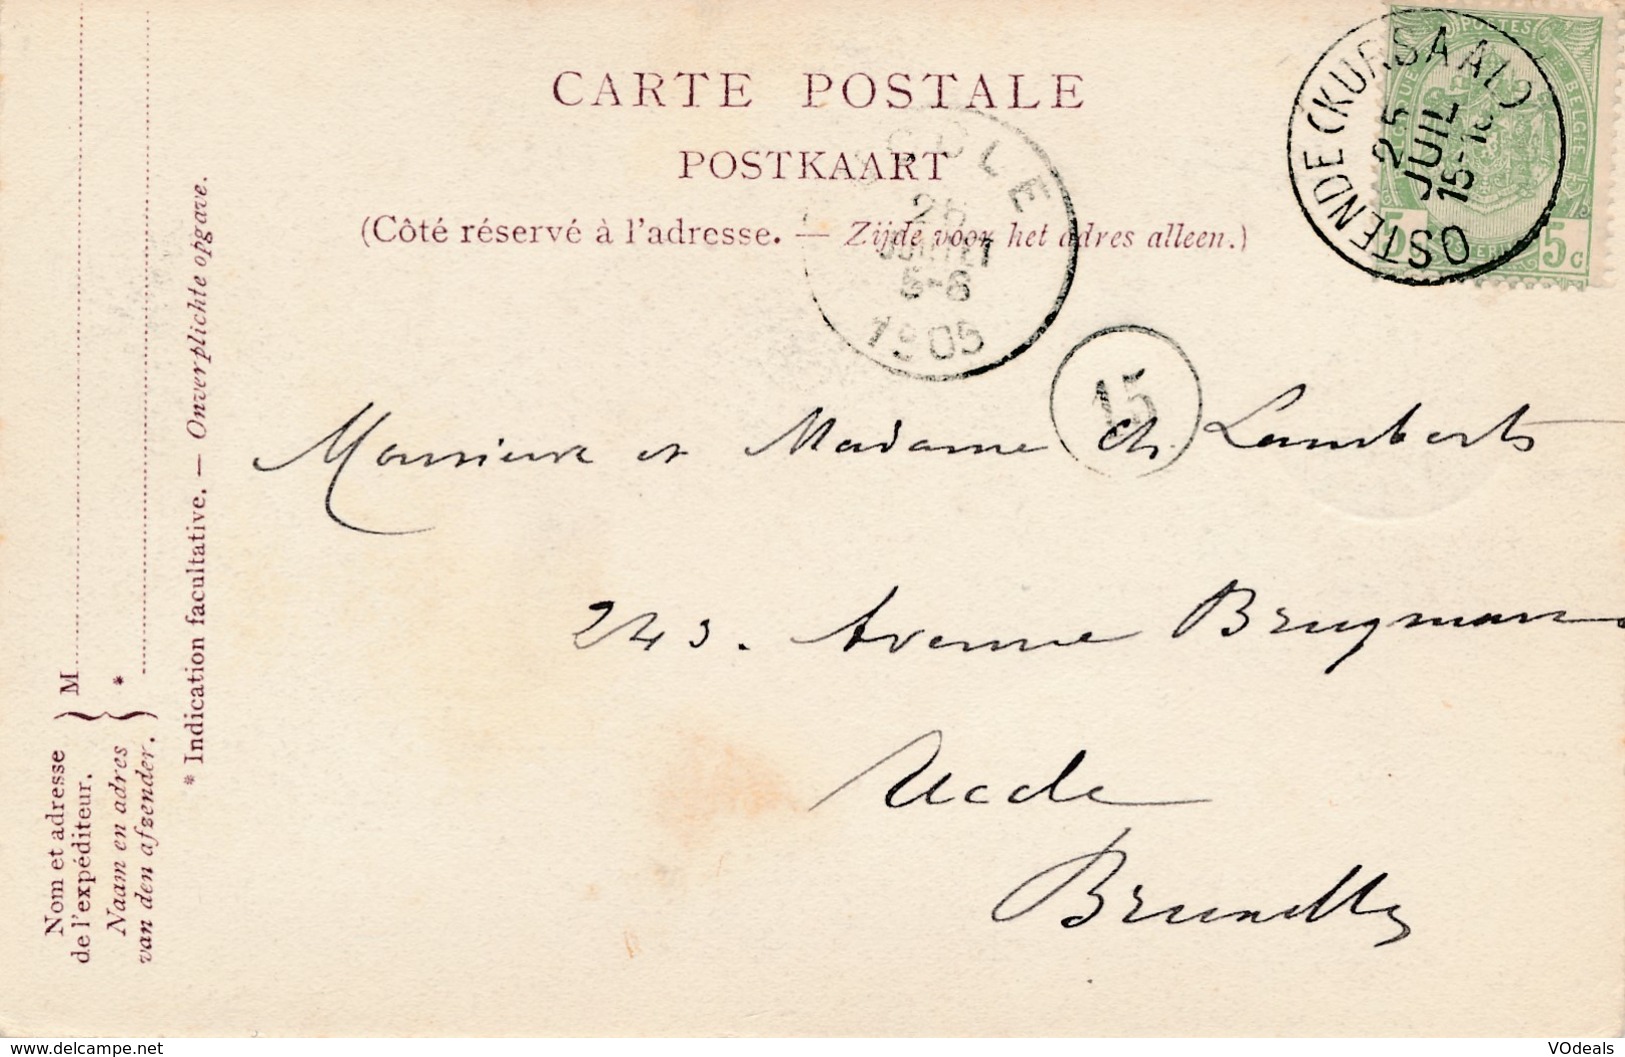 CARTE POSTALE
POSTKAART
(Côté réservé à l'adresse. — Zijde voor het adres alleen.)
OSTENDE (KURSAAL)
25
JUIL
15-16
POSTES
BELGIQUE
BELGIE
5 5c
UCCLE
25
JUILLET
5-6
1905
15
Monsieur et Madame Ch. Lamberts
243. Avenue Brugmann
Uccle
Bruxelles
Nom et adresse
de l'expéditeur.
M
Naam en adres
van den afzender.
*
* Indication facultative. — Onverplichte opgave.
delcampe.net
VOdeals